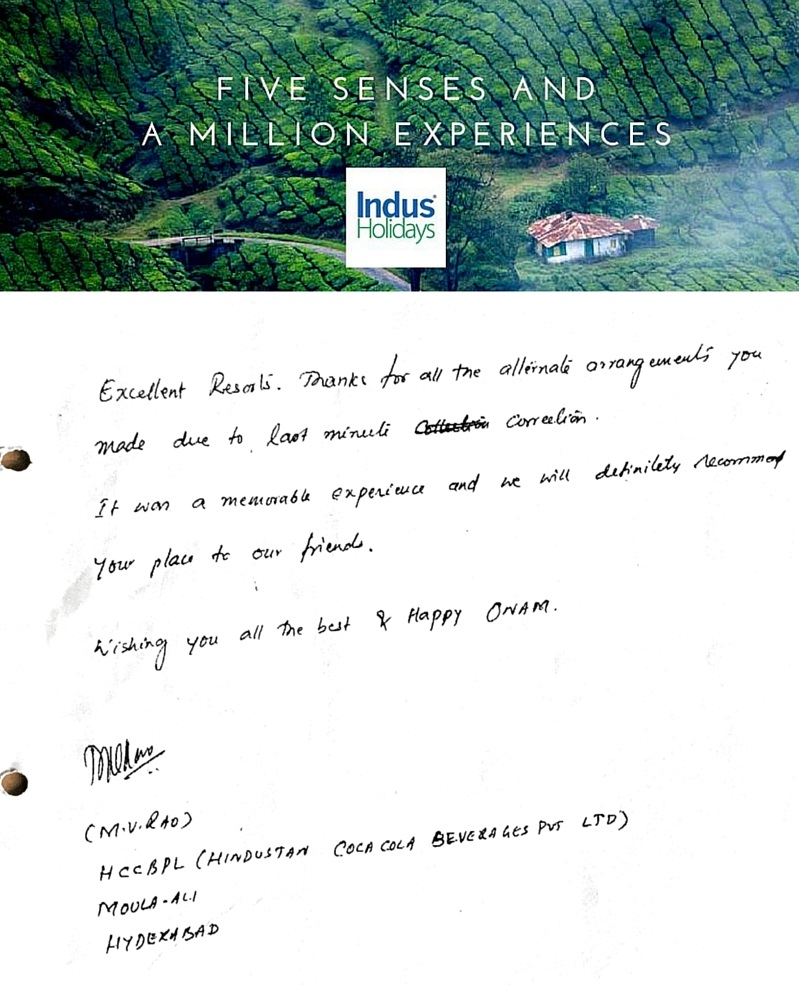 FIVE SENSES AND
A MILLION EXPERIENCES
Indus®
Holidays
Excellent Resorts. Thanks for all the alternate arrangements you
made due to last minute Collection Correction.
It was a memorable experience and we will definitely recommend
your place to our friends.
Wishing you all the best & Happy ONAM.
(M.V.RAO)
HCCBPL (HINDUSTAN COCA COLA BEVERAGES PVT LTD)
MOULA-ALI
HYDERABAD